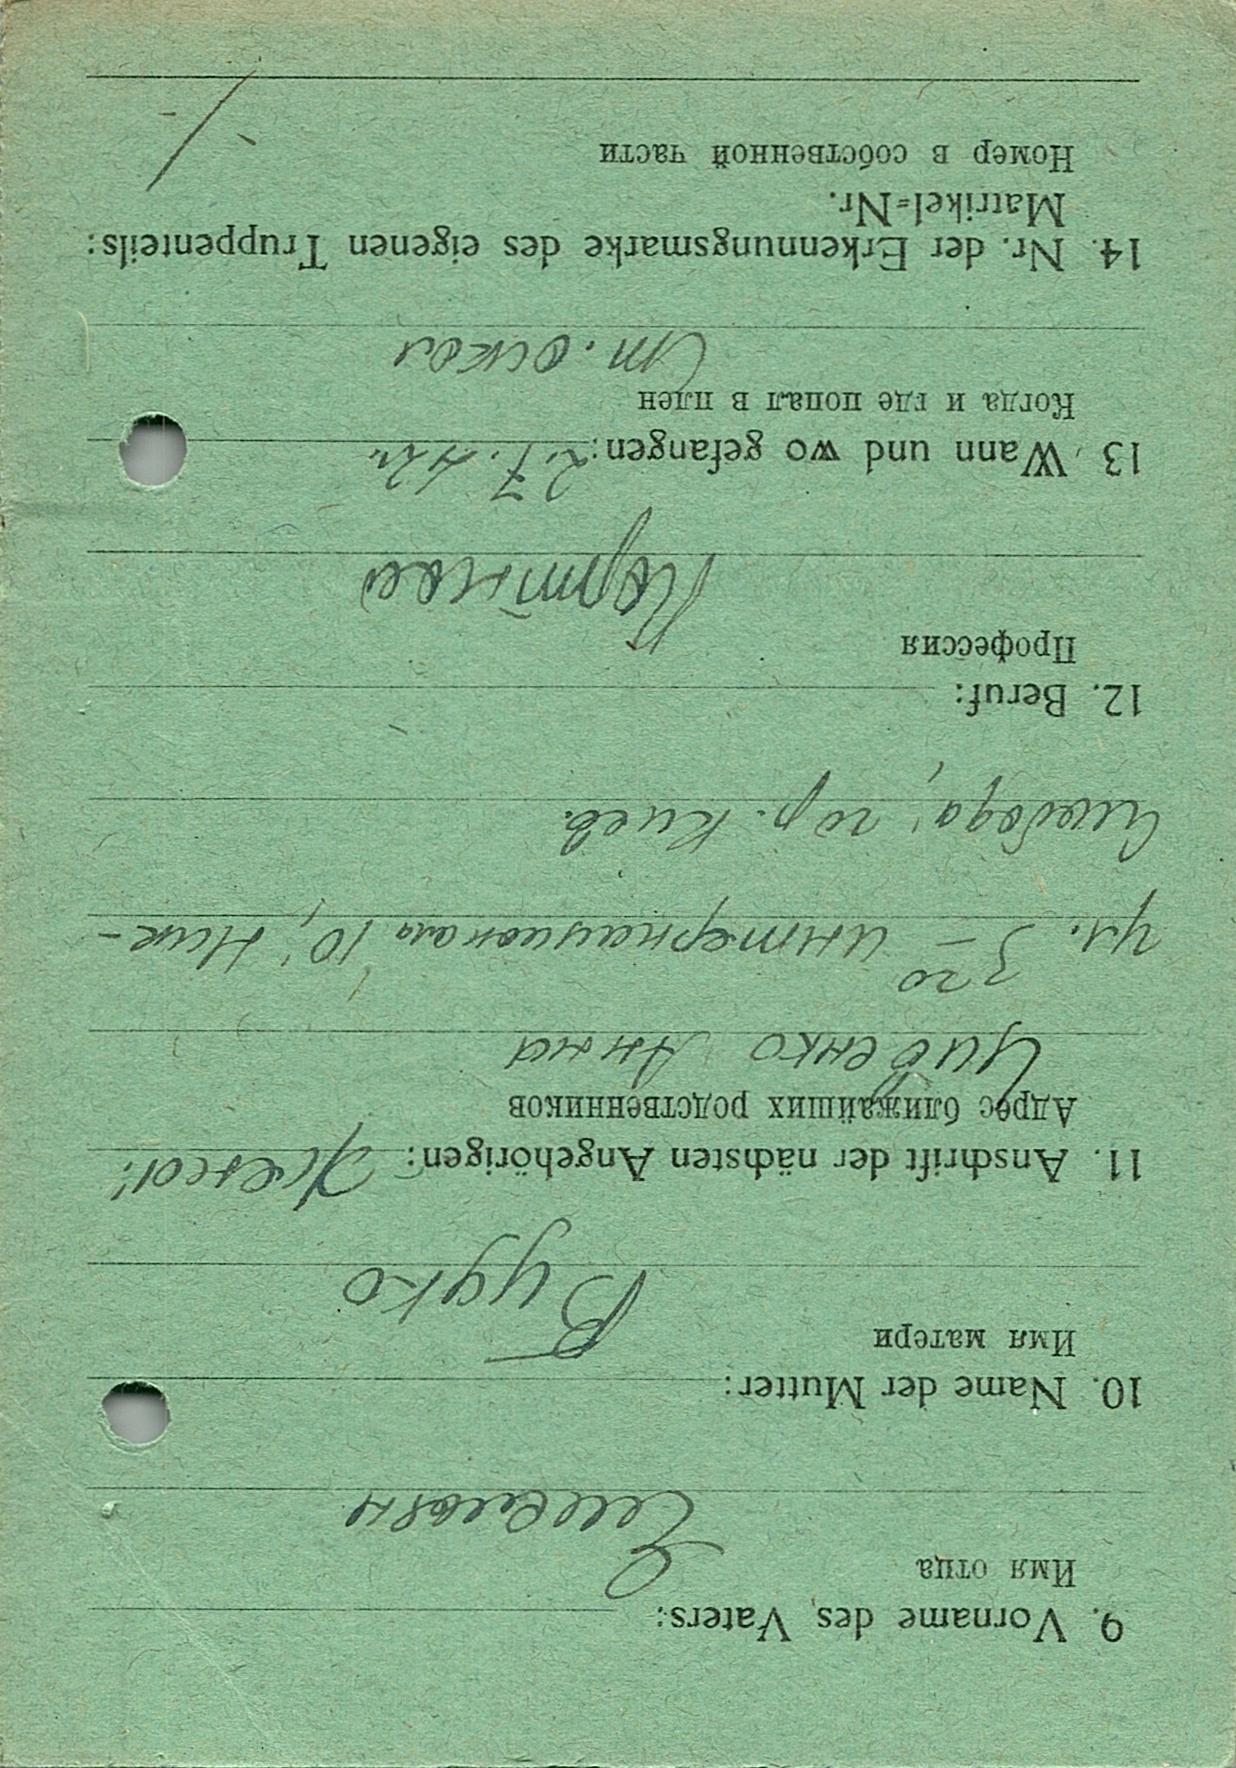 9. Vorname des Vaters:
Имя отца
Емельян
10. Name der Mutter:
Имя матери
Будко
11. Anschrift der nächsten Angehörigen: Жена:
Адрес ближайших родственников
Цибенко Анна
ул. 3го – интернационала 10, Ник-
Слобода, гор. Киев.
12. Beruf:
Профессия
13. Wann und wo gefangen: 2.7.42г.
Когда и где попал в плен
Ст. оскол
14. Nr. der Erkennungsmarke des eigenen Truppenteils:
Matrikel=Nr.
Номер в собственной части